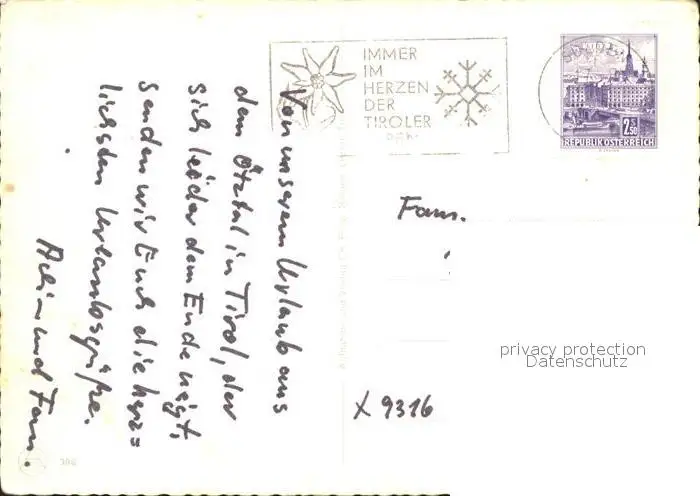 IMMER
IM
HERZEN
DER
TIROLER
2S50
REPUBLIK ÖSTERREICH
Von unserem Urlaub aus
dem Ötztal in Tirol, der
sich leider dem Ende neigt,
senden wir Euch die herz=
lichsten Urlaubsgrüße.
Achim und Fam.
Fam.
X 9316
privacy protection
Datenschutz